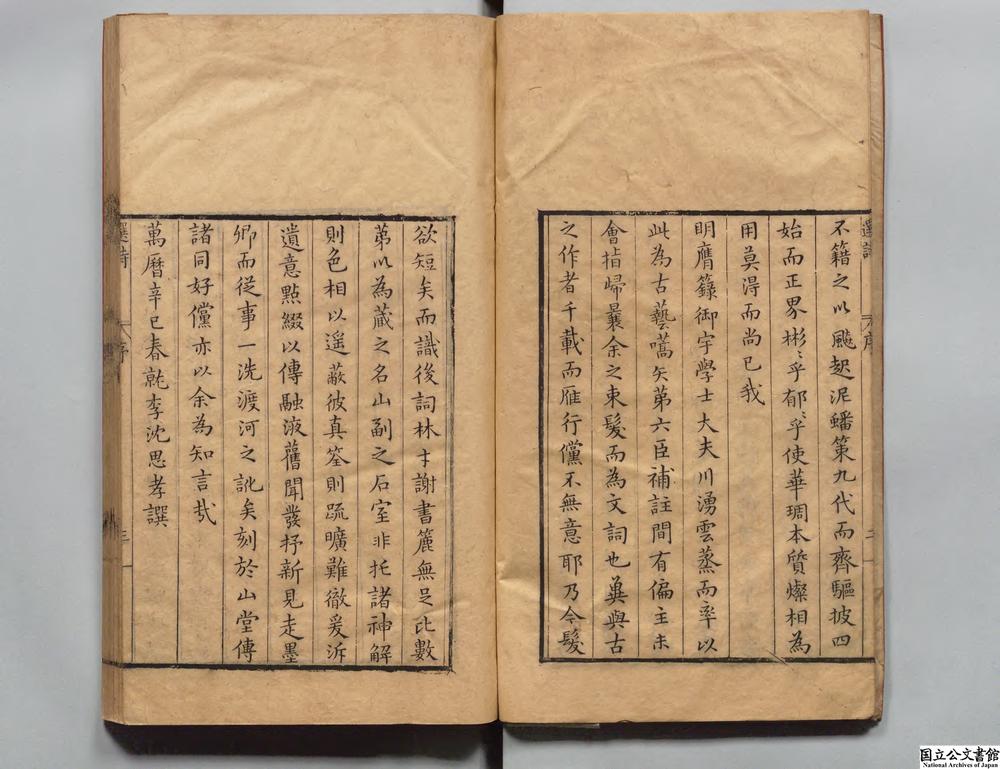 不籍之以飈起泥蟠策九代而齊驅披四
始而正界彬〻乎郁〻乎使華琱本質燦相為
用莫得而尚已我
明膺籙御宇學士大夫川湧雲蒸而率以
此為古藝嚆矢第六臣補註間有偏主未
會指歸曩余之束髮而為文詞也冀與古
之作者千載而雁行儻不無意耶乃今髮
選詩
序
三
欲短矣而識後詞林才謝書簏無足比數
第以為蔵之名山副之石室非托諸神解
則色相以遥蔽彼真筌則疏曠難徹爰泝
遺意點綴以傳融液舊聞發抒新見走墨
卿而從事一洗渡河之訛矣刻於山堂傳
諸同好儻亦以余為知言哉
萬曆辛巳春就李沈思孝譔
選詩
序
三
国立公文書館
National Archives of Japan